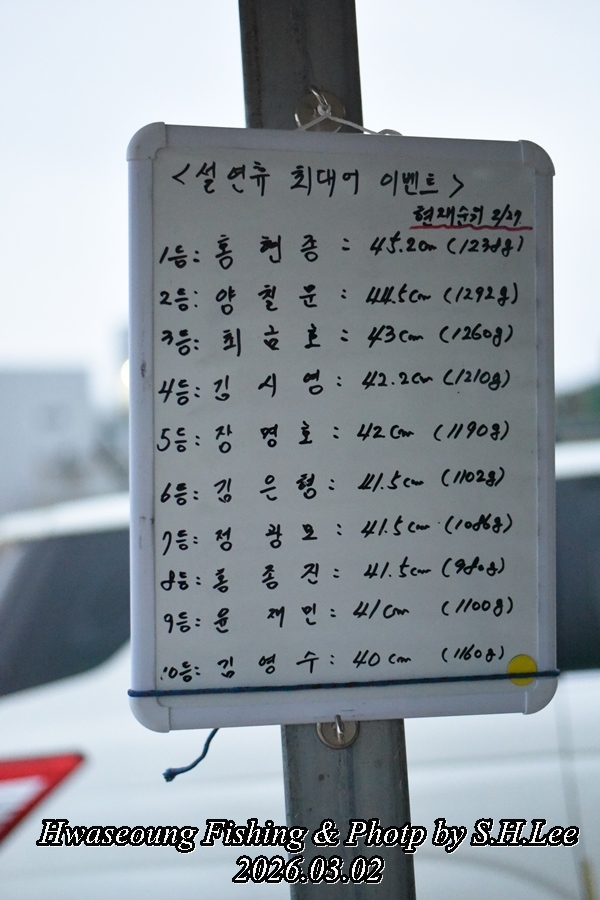 <설 연휴 최대어 이벤트>
현재순위 2/27
1등: 홍 현 종 : 45.2cm (1238g)
2등: 양 철 문 : 44.5cm (1292g)
3등: 최 금 호 : 43cm (1260g)
4등: 김 시 영 : 42.2cm (1210g)
5등: 장 명 호 : 42cm (1190g)
6등: 김 은 형 : 41.5cm (1102g)
7등: 정 광 모 : 41.5cm (1086g)
8등: 홍 종 진 : 41.5cm (980g)
9등: 윤 재 민 : 41cm (1100g)
10등: 김 영 수 : 40cm (1160g)
Hwaseoung Fishing & Photp by S.H.Lee
2026.03.02